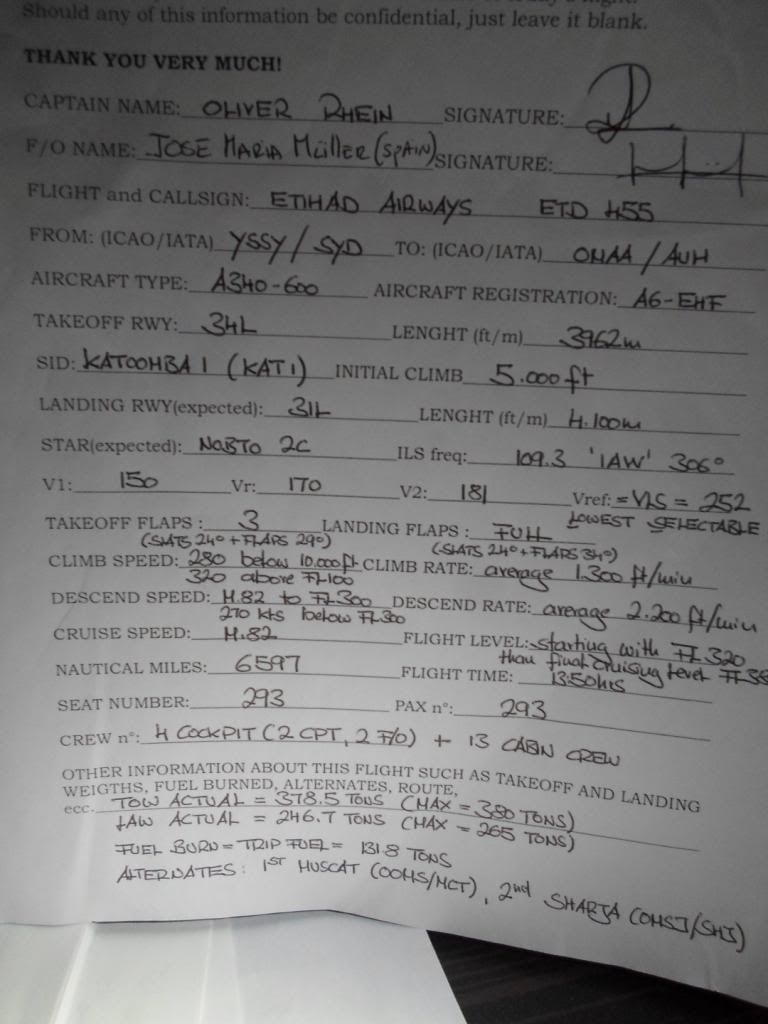 Should any of this information be confidential, just leave it blank.
THANK YOU VERY MUCH!
CAPTAIN NAME: OLIVER RHEIN SIGNATURE:
F/O NAME: JOSE MARIA MüLLER (SPAIN) SIGNATURE:
FLIGHT and CALLSIGN: ETIHAD AIRWAYS ETD 455
FROM: (ICAO/IATA) YSSY / SYD TO: (ICAO/IATA) OMAA / AUH
AIRCRAFT TYPE: A340-600 AIRCRAFT REGISTRATION: A6-EHF
TAKEOFF RWY: 34L LENGHT (ft/m) 3962m
SID: KATOOMBA 1 (KAT1) INITIAL CLIMB 5.000 ft
LANDING RWY(expected): 31L LENGHT (ft/m) 4.100m
STAR(expected): NOBTO 2C ILS freq: 109.3 'IAW' 306°
V1: 150 Vr: 170 V2: 181 Vref: = VLS = 252
LOWEST SELECTABLE
TAKEOFF FLAPS : 3 LANDING FLAPS : FULL
(SLATS 24° + FLAPS 29°) (SLATS 24° + FLAPS 34°)
CLIMB SPEED: 280 below 10.000ft CLIMB RATE: average 1.300 ft/min
320 above FL100
DESCEND SPEED: M.82 to FL300 DESCEND RATE: average 2.200 ft/min
270 kts below FL300
CRUISE SPEED: M.82 FLIGHT LEVEL: starting with FL320
than final cruising level
NAUTICAL MILES: 6597 FLIGHT TIME: 13:50hrs
SEAT NUMBER: 293 PAX n°: 293
CREW n°: 4 COCKPIT (2 CPT, 2 F/O) + 13 CABIN CREW
OTHER INFORMATION ABOUT THIS FLIGHT SUCH AS TAKEOFF AND LANDING
WEIGTHS, FUEL BURNED, ALTERNATES, ROUTE,
ecc. TOW ACTUAL = 378.5 TONS (MAX = 380 TONS)
LAW ACTUAL = 246.7 TONS (MAX = 265 TONS)
FUEL BURN = TRIP FUEL = 131.8 TONS
ALTERNATES: 1ST MUSCAT (OOMS/MCT), 2nd SHARJA (OMSJ/SHJ)